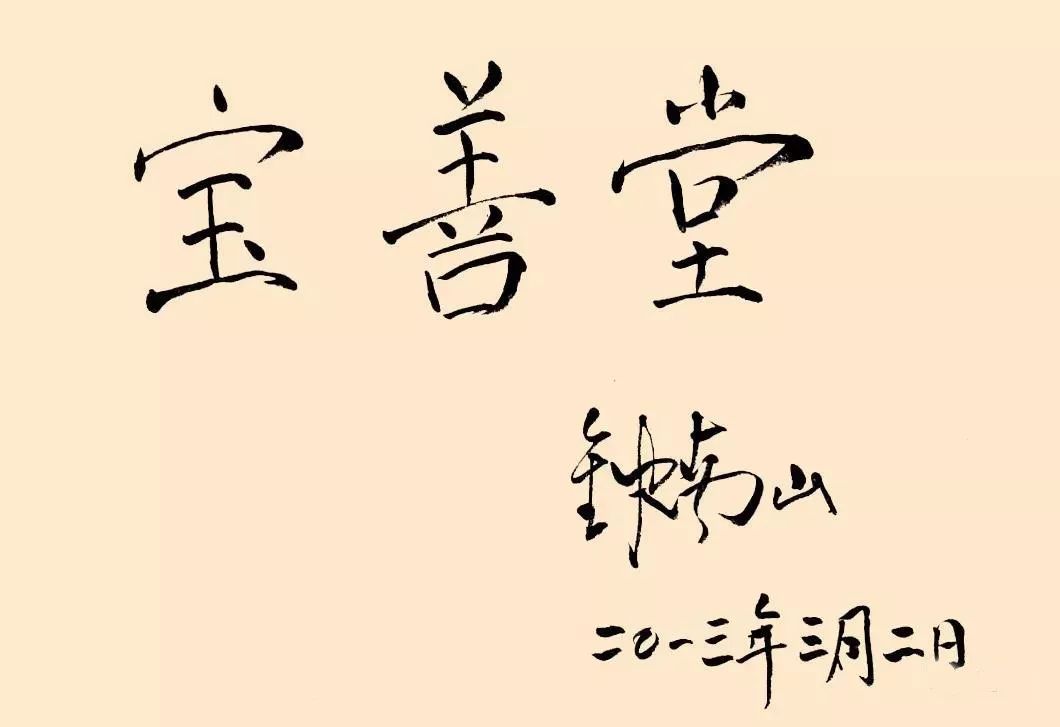 宝善堂
钟南山
二〇一三年三月二日